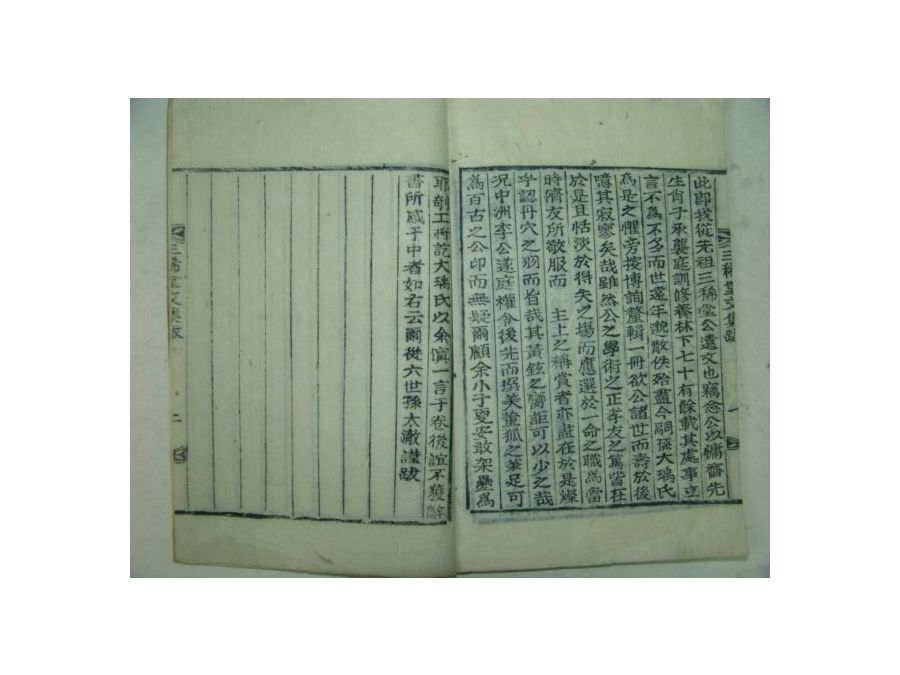 三稀堂文集跋 一
此卽我從先祖三稀堂公遺文也竊念公以慵齋先
生肖子承襲庭訓修養林下七十有餘載其處事立
言不為不多而世遠年邈散佚殆盡今嗣孫大瑀氏
為是之懼旁按博詢釐輯一冊欲公諸世而壽於後
噫其寂寥矣哉雖然公之學術之正孝友之篤皆在
於是且恬淡於得失之場而應選於一命之職為當
時儕友所敬服而 主上之稱賞者亦盡在於是燦
乎認丹穴之羽而旨哉其黃鉉之臠詎可以少之哉
況中洲李公遂庭權令後先而撰美董狐之筆足可
為百古之公印而無疑爾顧余小子更安敢架疊為
耶剞工將訖大瑀氏以余寘一言于卷後誼不獲辭
書所感于中者如右云爾從六世孫太澈謹跋
三稀堂文集跋 二